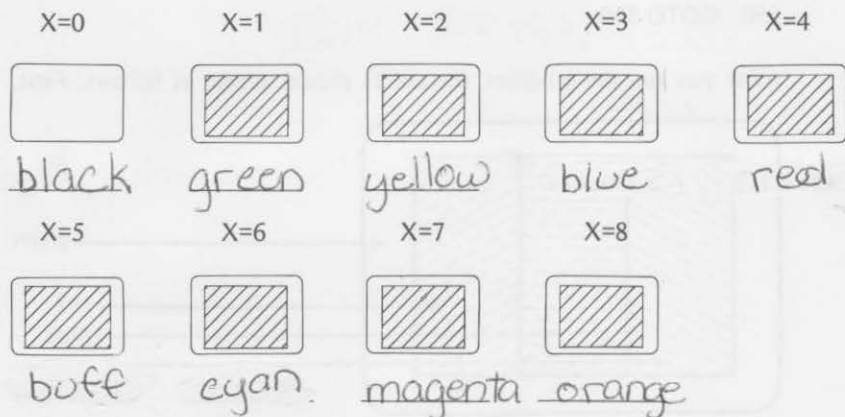 X=0 X=1 X=2 X=3 X=4
black green yellow blue red
X=5 X=6 X=7 X=8
buff cyan. magenta orange